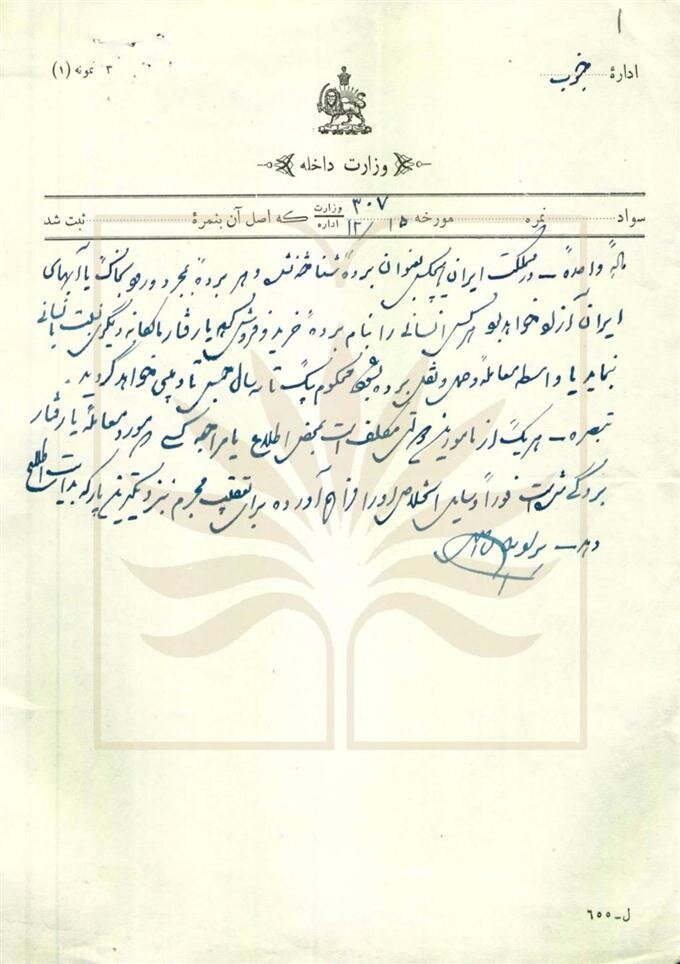 ۱
ادارهٔ جنوب
۳ نمونه (۱)
وزارت داخله
سواد نمره مورخه ۱۵/۱۲ ۳۰۷ وزارت اداره که اصل آن بنمرهٔ ثبت شد
مادهٔ واحده – در مملکت ایران هیچکس بعنوان برده شناخته نشده و هر برده بمجرد ورود بخاک یا آبهای
ایران آزاد خواهد بود هر کس انسانی را بنام برده خرید و فروش کرده یا رفتار مالکانه دیگری نسبت بانسانی
بنماید یا واسطه معامله و حمل و نقل برده بشود محکوم بیک تا سه سال حبس تأدیبی خواهد گردید.
تبصره – هر یک از مامورین دولتی مکلف است بمحض اطلاع یا مراجعه کسی که مورد معامله یا رفتار
بردگی شده است فوراً وسایل استخلاص او را فراهم آورده برای تعقیب مجرم نیز بنزدیکترین پارکه بدایت اطلاع
دهد –
ل-۶۰۰